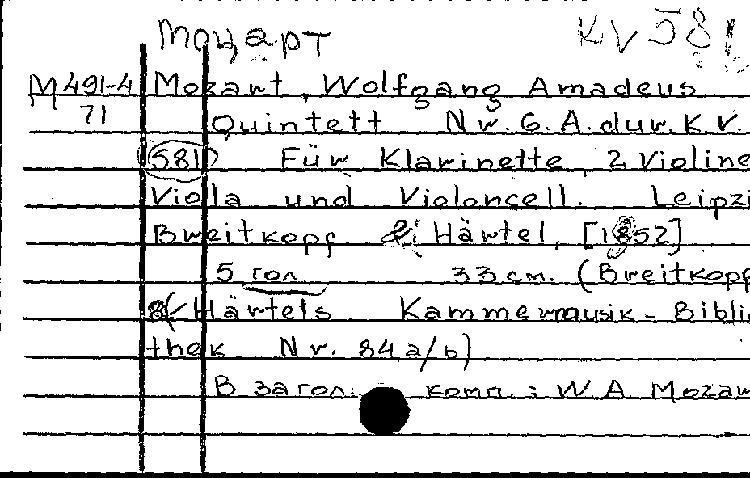 Моцарт KV 581
М 491-4 Mozart, Wolfgang Amadeus
71 Quintett Nr. 6. A. dur. K.V.
(581) Für Klarinette, 2 Violine
Viola und Violoncell. Leipzi
Breitkopf & Härtel, [1852]
5 гол 33 см. (Breitkopf
&/ Härtels Kammermusik - Biblio
thek Nr. 84 a/b)
В загол. комп.: W A Mozar